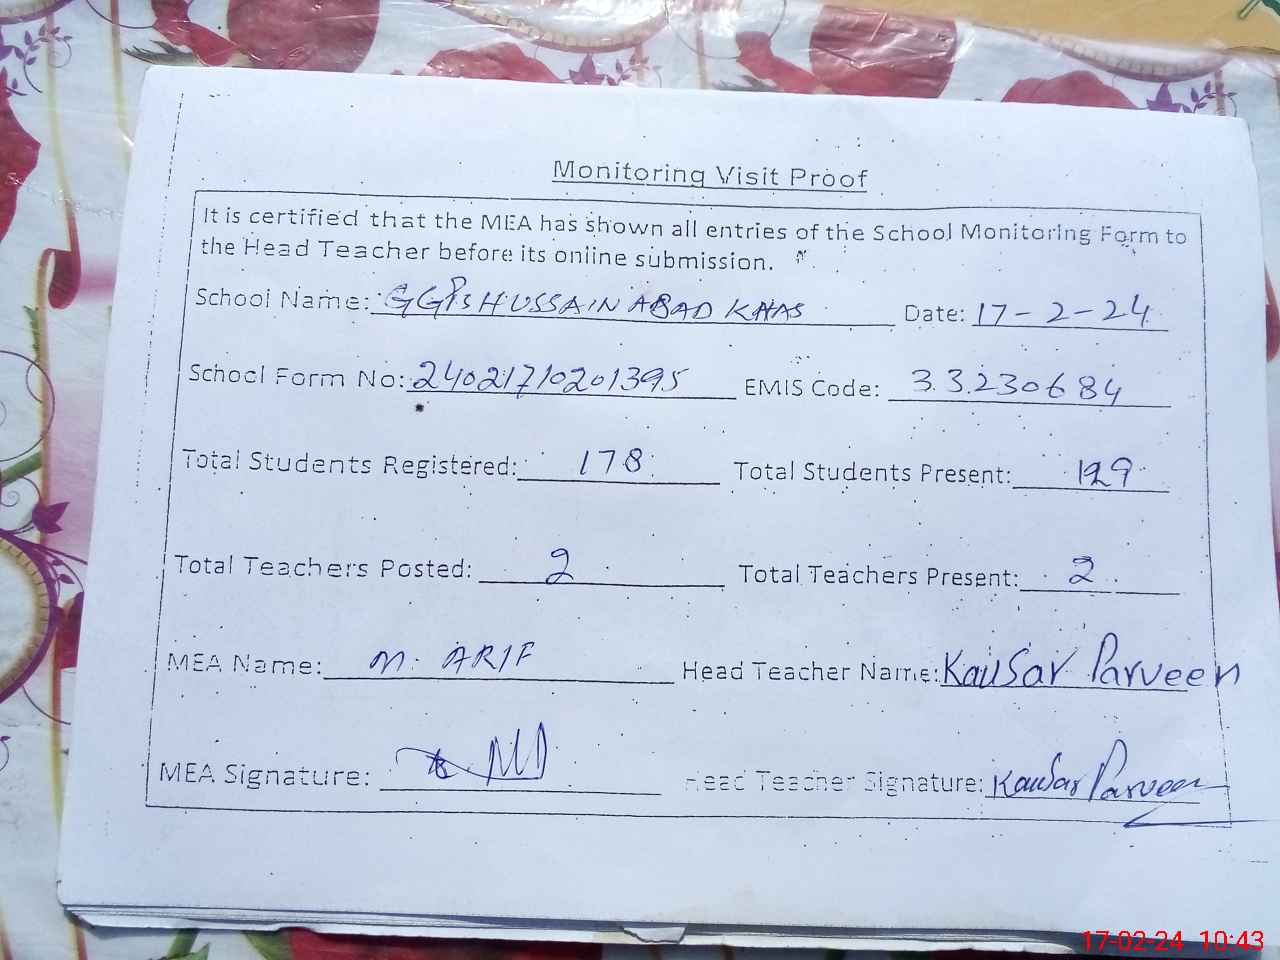 Monitoring Visit Proof
It is certified that the MEA has shown all entries of the School Monitoring Form to
the Head Teacher before its online submission.
School Name: GGPS HUSSAIN ABAD KHAS Date: 17-2-24
School Form No: 24021710201395 EMIS Code: 33230684
Total Students Registered: 178 Total Students Present: 129
Total Teachers Posted: 2 Total Teachers Present: 2
MEA Name: M. ARIF Head Teacher Name: Kausar Parveen
MEA Signature: Head Teacher Signature: Kausar Parveen
17-02-24 10:43